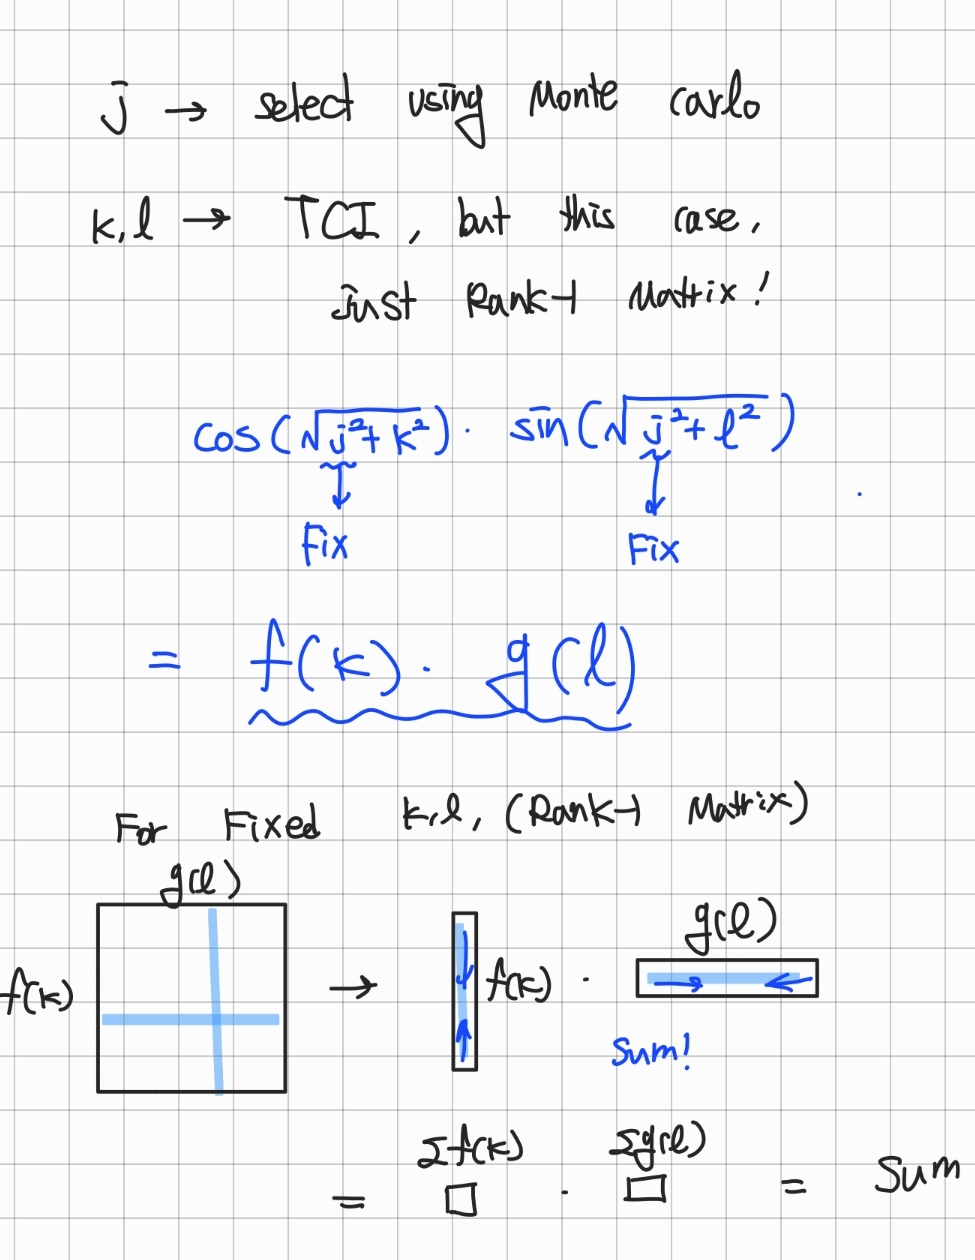 j → select using Monte Carlo
k, l → TCI, but this case,
just Rank-1 Matrix!
cos(√j²+k²) · sin(√j²+l²)
↓ ↓
Fix Fix
= f(k) · g(l)
For Fixed k, l, (Rank-1 Matrix)
g(l)
f(k) → f(k) · g(l)
Sum!
Σf(k) Σg(l)
= □ · □ = Sum